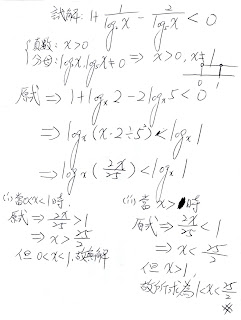 試解: 1 + 1/log₂x - 2/log₅x < 0
{真數: x>0
分母: log₂x, log₅x≠0 ⇒ x>0, x≠1
0 1
原式 ⇒ 1+logₓ2-2logₓ5<0
⇒ logₓ(x·2÷5²)<logₓ1
⇒ logₓ(2x/25)<logₓ1
(i) 當0<x<1時:
原式 ⇒ 2x/25>1
⇒ x>25/2
但0<x<1, 故無解
(ii) 當 x>1時
原式 ⇒ 2x/25<1
⇒ x<25/2
但 x>1,
故所求為 1<x<25/2
※